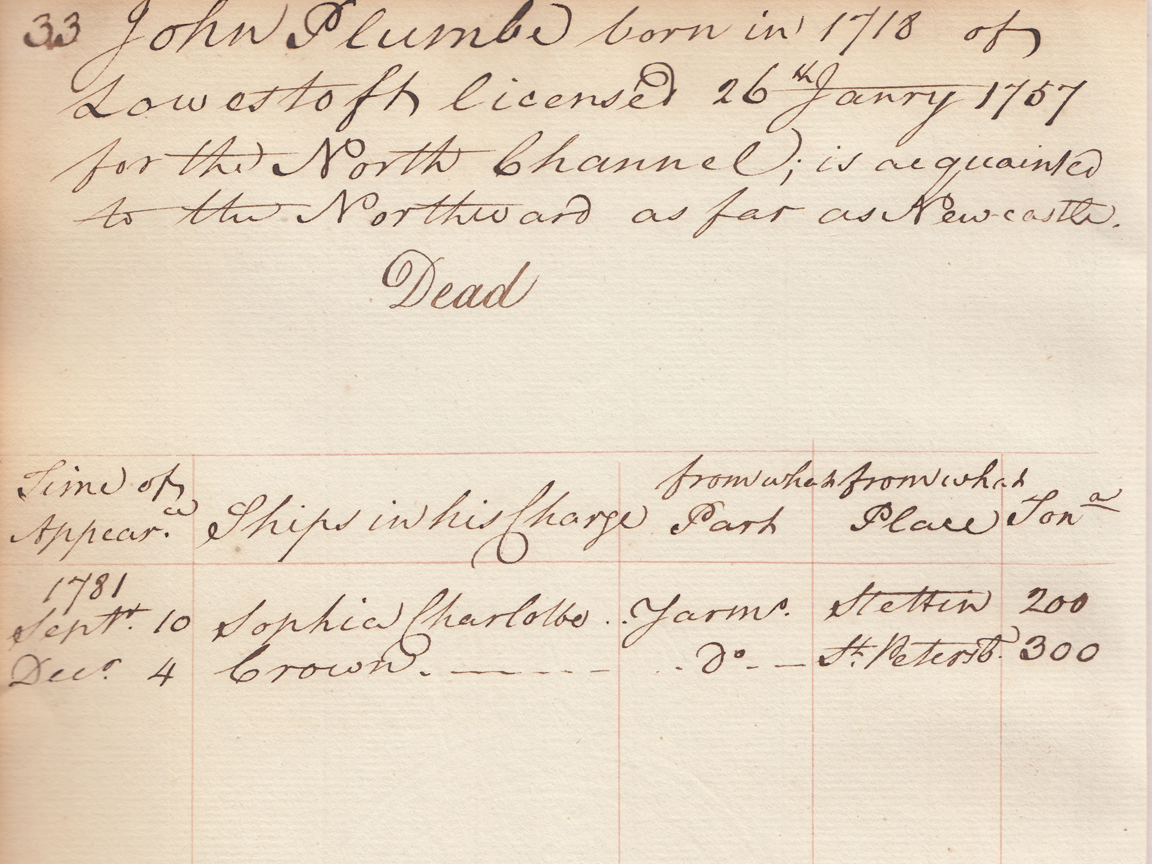 33 John Plumbe born in 1718 of
Lowestoft licensed 26th Janry 1757
for the North Channel; is acquainted
to the Northward as far as Newcastle.
Dead
Time of Appear.ce Ships in his Charge from what Part from what Place Tona
1781
Septr. 10 Sophia Charlotte .. Yarmo. Stettin 200
Decr. 4 Crown. — — - - - . . Do. - — St. Petersb. 300